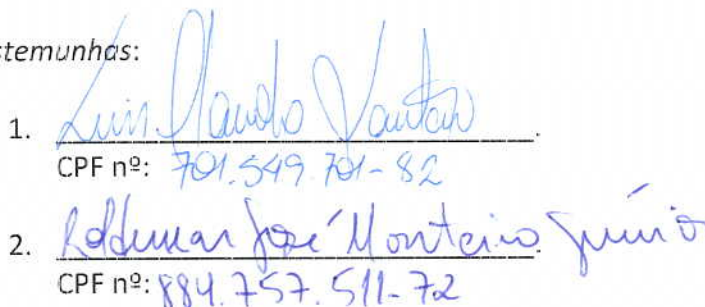 stemunhas:
1. Luis Claudio Santos.
CPF nº: 701.549.701-82
2. Roldemar José Monteiro Júnior
CPF nº: 884.757.511-72